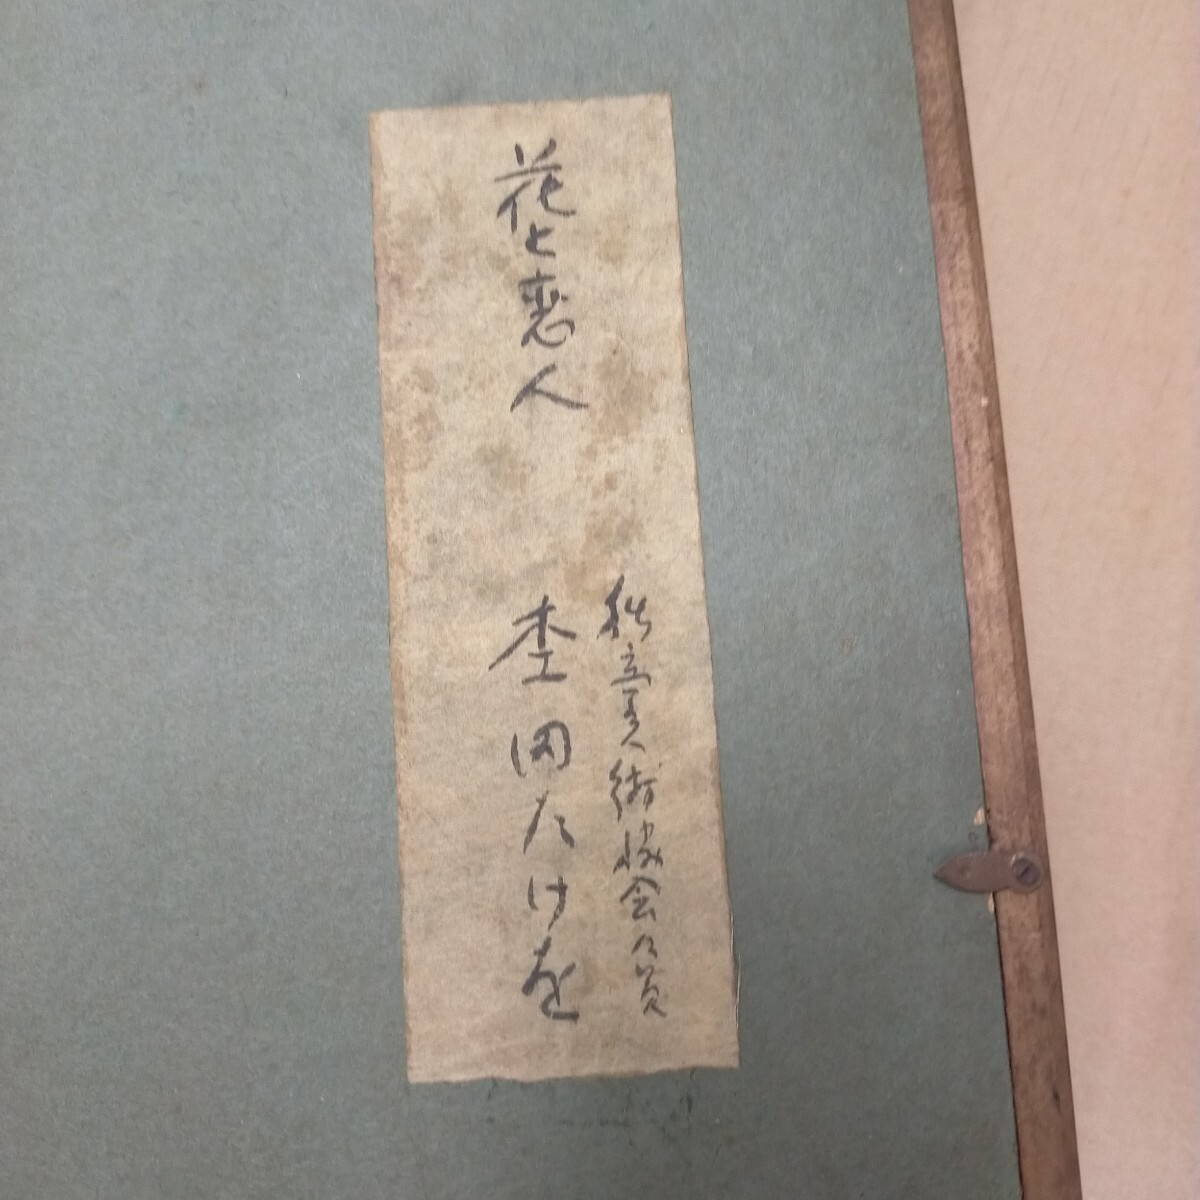 花と恋人
独立美術協会々員
杢田たけを